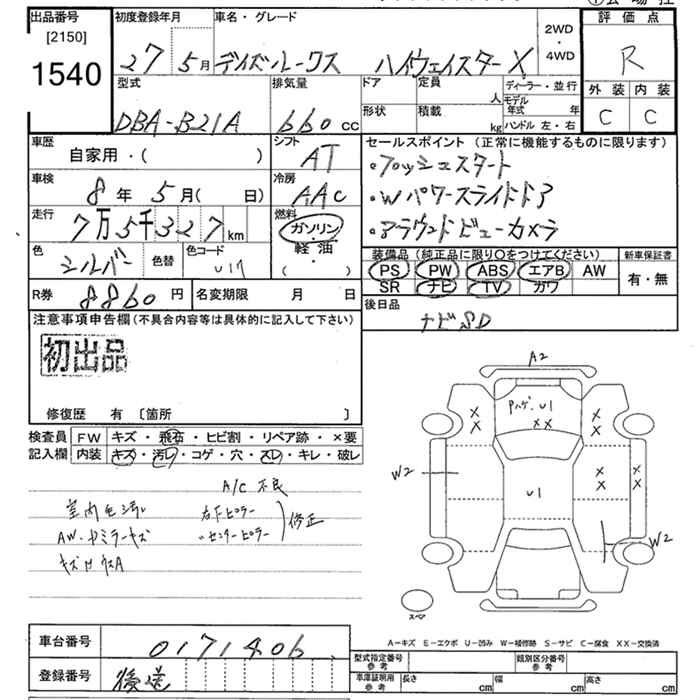 出品番号
[2150]
1540
初度登録年月
27 5月
車名・グレード
デイズルークス ハイウェイスターX
2WD
・
4WD
評価点
R
外装 内装
C C
型式
DBA-B21A
排気量
660cc
ドア
定員
人
形状
積載
kg
ディーラー・並行
モデル
年式 年
ハンドル 左・右
車歴
自家用・( )
シフト
AT
車検
8年 5月( 日)
冷房
AAC
走行
7万5千327km
燃料
ガソリン
・
軽油
( )
色
シルバー
色替
色コード
R券
8860円
名変期限 月 日
セールスポイント(正常に機能するものに限ります)
・プッシュスタート
・Wパワースライドドア
・アラウンドビューカメラ
装備品(純正品に限り○をつけてください)
PS PW ABS エアB AW
SR ナビ TV カワ
新車保証書
有・無
後日品
ナビSD
注意事項申告欄(不具合内容等は具体的に記入して下さい)
初出品
修復歴 有 [箇所 ]
検査員
記入欄
FW キズ・飛石・ヒビ割・リペア跡・×要
内装 キズ・汚レ・コゲ・穴・スレ・キレ・破レ
A/C不良
室内毛汚レ 右Fピラー
AW・ドミラーキズ 〃センターピラー 修正
A2
U1
××
×
×
×
×
W2
××
××
U1
W2
スペア
A-キズ E-エクボ U-凹み W-補修跡 S-サビ C-腐食 XX-交換済
車台番号
0171406
登録番号
後送
型式指定番号
参考
類別区分番号
参考
車庫証明用
参考
長さ cm
幅 cm
高さ cm